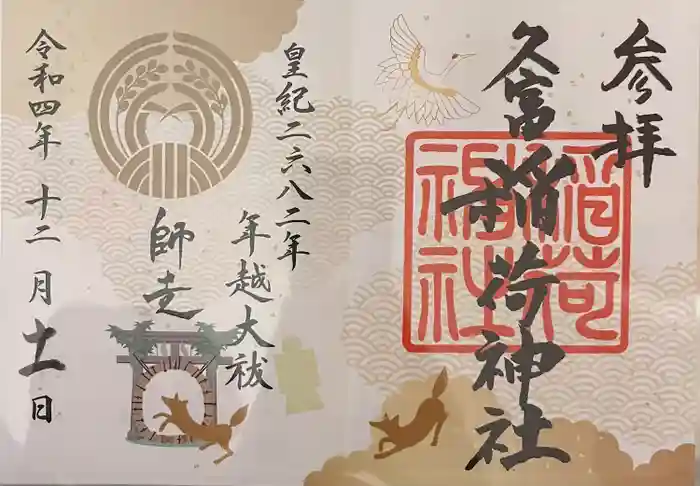 参拝
久富稲荷神社
稲荷神社
皇紀二六八二年
年越大祓
師走
令和四年十二月十一日